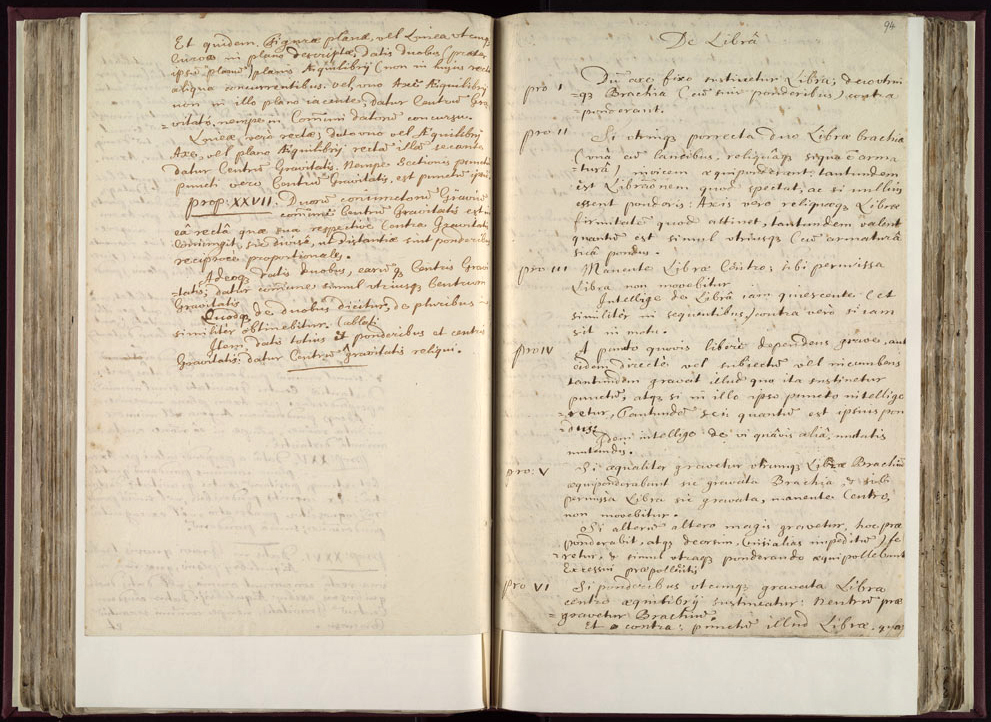 Et quidem Figuræ planæ, vel Lineæ, utcunq
curvæ in plano descriptæ, datis duobus (præter
ipsū planū) planis Æquilibrij (non in hujus rectâ
aliqua concurrentibus. vel, uno Axe Æquilibrij
non in illo plano iacente, datur Centrū Gra
=vitatis, nempe in Comuni datorū concursu.
Lineæ, vero rectæ; dato uno vel Æquilibrij
Axe, vel plano Æquilibrij rectā illā secante
datur Centrū Gravitatis, Nempe Sectionis punctū
puncti vero Centrū Gravitatis, est punctū ipsū.
prop: XXVII. Duorū coniunctorū Graviū
comune Centrū Gravitatis est in
eâ rectâ quæ sua respective Centra Gravitatis
coniungit, sic divisâ, ut distantiæ sint ponderibus
reciproce proportionales.
Adeoq, datis duobus, earūq Centris Gravi
=tatis; datur comune simul utriusq Centrum
Gravitatis
Quodq, de duobus dicitur, de pluribus
similiter obtinebitur. (ablati
Item, datis totius et ponderibus et centris
Gravitatis; datur Centrū Gravitatis reliqui.
94
De Librâ
pro I
Dū axe fixo sustinetur Libra; de eo utrin
=q Brachia (cū suis ponderibus) contra
=ponderant.
pro II
Si utrinq porrecta duo Libræ brachia
(unà cū lancibus, reliquâq siqua ē arma
=turâ) invicem æquiponderent; tantundem
est Librationem quod spectat, ac si nullius
essent ponderis: Axis vero reliquæq Libræ
firmitatē quod attinet, tantundem valent
quantū est simul utriusq (cū armaturâ
sicâ pondus.
pro III
Manente Libræ Centro; sibi permissa
Libra non movebitur
Intellige de Librâ iam quiescente (et
similiter in sequentibus) contra vero si iam
sit in motu.
pro IV
A puncto quovis liberè dependens grave, aut
eidem directè vel subiectū vel incumbens
tantundem gravat illud quo ita sustinetur
punctū, atq si in illo ipso puncto intellige
=retur, Tantundē sci: quantū est ipsius pon
=dus:
Idem intellige de vi quâvis aliâ, mutatis
mutandis.
pro: V
Si æqualiter gravetur utrumq Libræ Brachiū
æquiponderabunt sic gravata Brachia, & sibi
permissa Libra sic gravata, manente Centro,
non movebitur.
Si alterū altero magis gravetur, hoc præ
ponderabit, atq deorsum, (nisi alias impeditū) fe
=retur, & simul utraq ponderando æquipollebunt
Excessui præpollenti
pro VI
Si ponderibus utcunq gravata Libra
centro æquilibrij sustineatur: Neutrū præ
=gravetur Brachiū.
Et è contra: punctū illud Libræ, quo